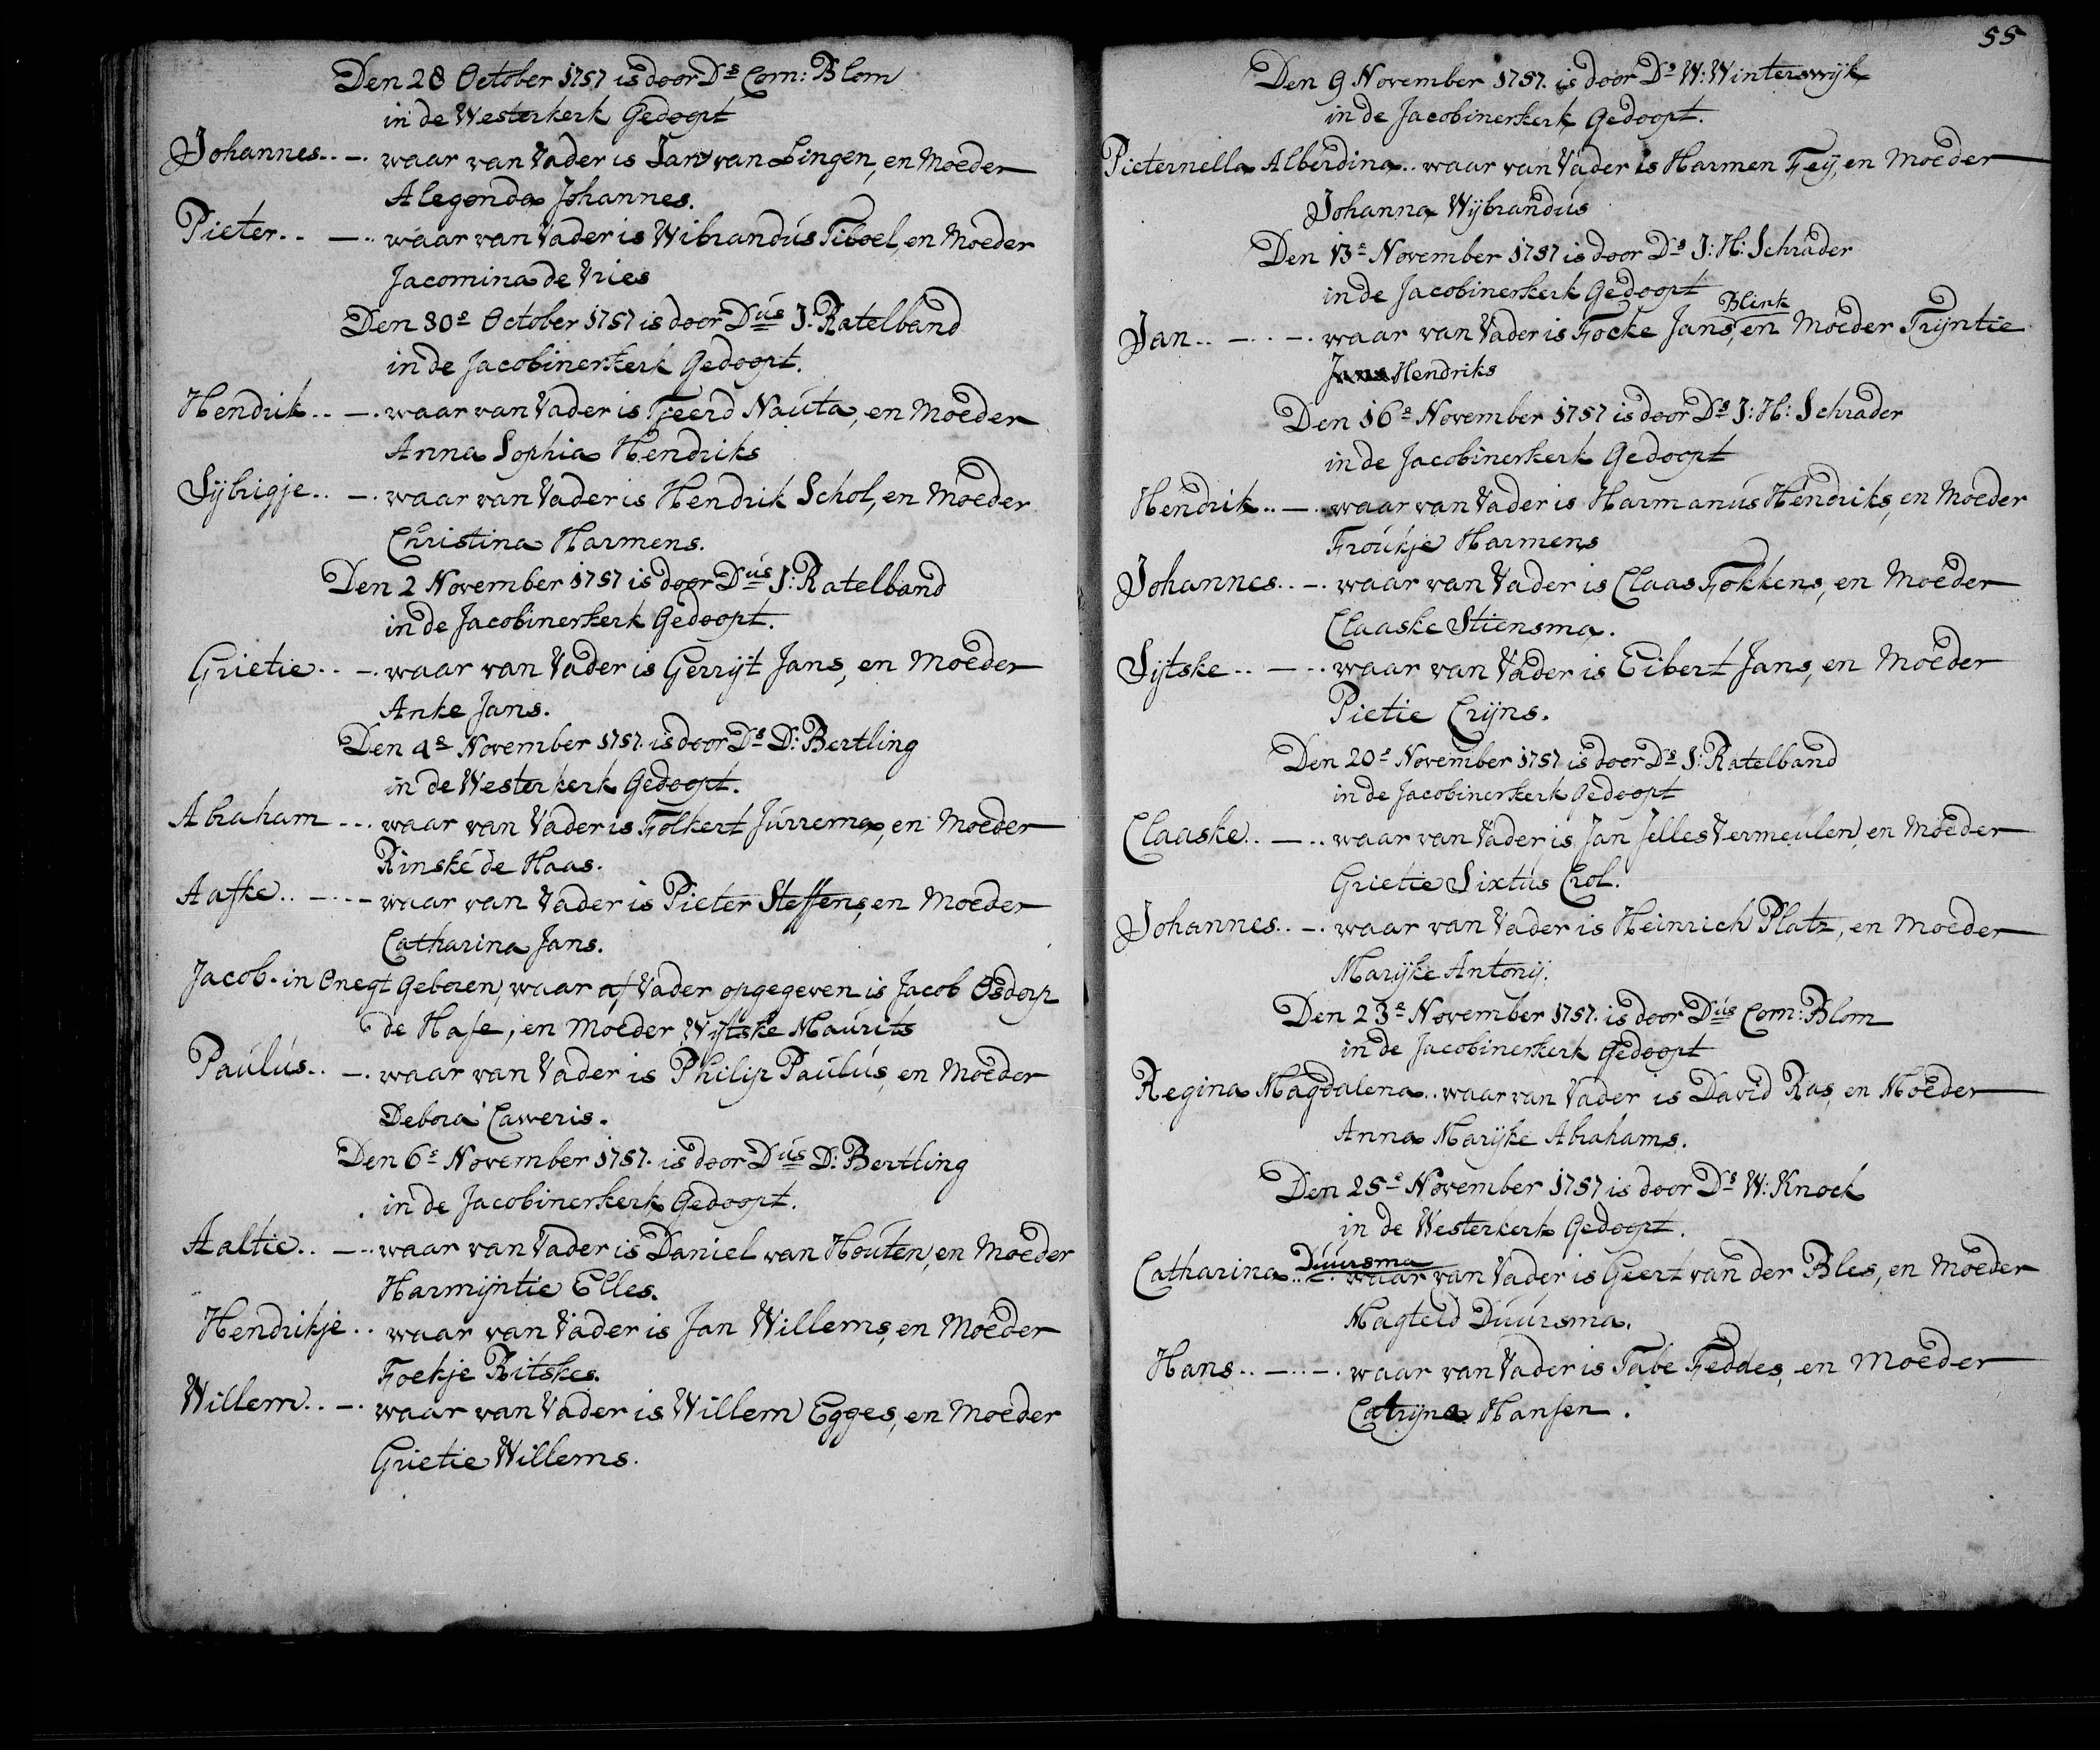 Den 28 October 1757 is door Ds Corn: Blom
in de Westerkerk Gedoopt
Johannes.. —. waar van Vader is Jan van Lingen, en Moeder
Alegonda Johannes.
Pieter.. —.. waar van Vader is Wibrandús Tiboel, en Moeder
Jacomina de Vries
Den 30e October 1757 is door Dús J: Ratelband
in de Jacobinerkerk Gedoopt.
Hendrik.. —. waar van Vader is Tjeerd Naúta, en Moeder
Anna Sophia Hendriks
Sijbrigje.. —. waar van Vader is Hendrik Schol, en Moeder
Christina Harmens.
Den 2 November 1757 is door Dús J: Ratelband
in de Jacobinerkerk Gedoopt.
Grietie.. —. waar van Vader is Gerrijt Jans, en Moeder
Anke Jans.
Den 4e November 1757. is door Ds D: Bertling
in de Westerkerk Gedoopt.
Abraham - - . waar van Vader is Folkert Júrrema, en Moeder
Rinské de Haas.
Aafke.. —. - - waar van Vader is Pieter Steffens, en Moeder
Catharina Jans.
Jacob. in Onegt Geboren, waar af Vader opgegeven is Jacob Osdorp
de Hase, en Moeder Wijtske Maúrits
Paúlús.. —. waar van Vader is Philip Paúlús, en Moeder
Debora Caweris.
Den 6e November 1757. is door Dús D: Bertling
in de Jacobinerkerk Gedoopt.
Aaltie.. —.. waar van Vader is Daniel van Hoúten, en Moeder
Harmijntie Elles.
Hendrikje.. waar van Vader is Jan Willems, en Moeder
Foekje Ritskes.
Willem.. —. waar van Vader is Willem Egges, en Moeder
Grietie Willems.
55
Den 9 November 1757. is door Ds W: Winterswijk
in de Jacobinerkerk Gedoopt.
Pieternella Alberdina.. waar van Vader is Harmen Feij, en Moeder
Johanna Wijbrandús
Den 13e November 1757 is door Ds J: H: Schrader
in de Jacobinerkerk Gedoopt
Blink
Jan.. —. . —. waar van Vader is Focke Jans, en Moeder Trijntie
Jans Hendriks
Den 16e November 1757 is door Ds J: H: Schrader
in de Jacobinerkerk Gedoopt
Hendrik.. —. waar van Vader is Harmanús Hendriks, en Moeder
Froúkje Harmens
Johannes.. —. waar van Vader is Claas Fokkens, en Moeder
Claaske Stiensma.
Sijtske.. —.. waar van Vader is Eibert Jans, en Moeder
Pietie Crijns.
Den 20e November 1757 is door Ds J: Ratelband
in de Jacobinerkerk Gedoopt
Claaske.. —.. waar van Vader is Jan Jelles Vermeúlen, en Moeder
Grietie Sixtús Crol.
Johannes.. —. waar van Vader is Heinrich Platz, en Moeder
Marijke Antonij.
Den 23e November 1757. is door Dús Corn: Blom
in de Jacobinerkerk Gedoopt
Regina Magdalena.. waar van Vader is David Ras, en Moeder
Anna Marijke Abrahams.
Den 25e November 1757 is door Ds W: Knock
in de Westerkerk Gedoopt.
Duursma
Catharina.. —. waar van Vader is Geert van der Bles, en Moeder
Magteld Dúúrsma.
Hans.. —.. —. waar van Vader is Tabe Feddes, en Moeder
Catrijna Hansen.